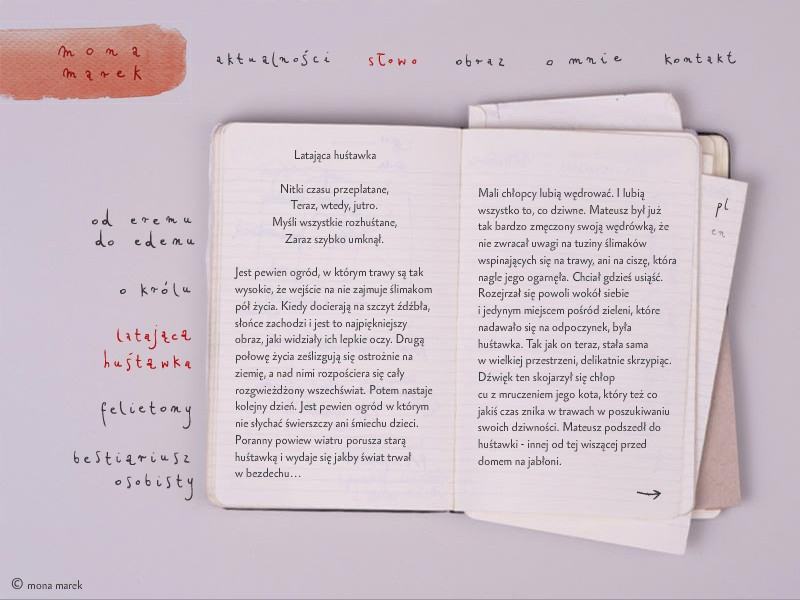 mona
marek
aktualności słowo obraz o mnie kontakt
od eremu
do edenu
o królu
latająca
huśtawka
felietony
bestiariusz
osobisty
Latająca huśtawka
Nitki czasu przeplatane,
Teraz, wtedy, jutro.
Myśli wszystkie rozhuśtane,
Zaraz szybko umknął.
Jest pewien ogród, w którym trawy są tak
wysokie, że wejście na nie zajmuje ślimakom
pół życia. Kiedy docierają na szczyt źdźbła,
słońce zachodzi i jest to najpiękniejszy
obraz, jaki widziały ich lepkie oczy. Drugą
połowę życia ześlizgują się ostrożnie na
ziemię, a nad nimi rozpościera się cały
rozgwieżdżony wszechświat. Potem nastaje
kolejny dzień. Jest pewien ogród w którym
nie słychać świerszczy ani śmiechu dzieci.
Poranny powiew wiatru porusza starą
huśtawką i wydaje się jakby świat trwał
w bezdechu...
Mali chłopcy lubią wędrować. I lubią
wszystko to, co dziwne. Mateusz był już
tak bardzo zmęczony swoją wędrówką, że
nie zwracał uwagi na tuziny ślimaków
wspinających się na trawy, ani na ciszę, która
nagle jego ogarnęła. Chciał gdzieś usiąść.
Rozejrzał się powoli wokół siebie
i jedynym miejscem pośród zieleni, które
nadawało się na odpoczynek, była
huśtawka. Tak jak on teraz, stała sama
w wielkiej przestrzeni, delikatnie skrzypiąc.
Dźwięk ten skojarzył się chłop
cu z mruczeniem jego kota, który też co
jakiś czas znika w trawach w poszukiwaniu
swoich dziwności. Mateusz podszedł do
huśtawki - innej od tej wiszącej przed
domem na jabłoni.
pl
en
© mona marek